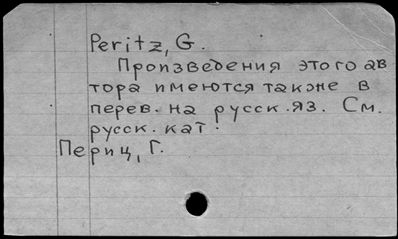 Peritz, G.
Произведения этого ав
тора имеются также в
перев. на русск. яз. См.
русск. кат.
Периц, Г.